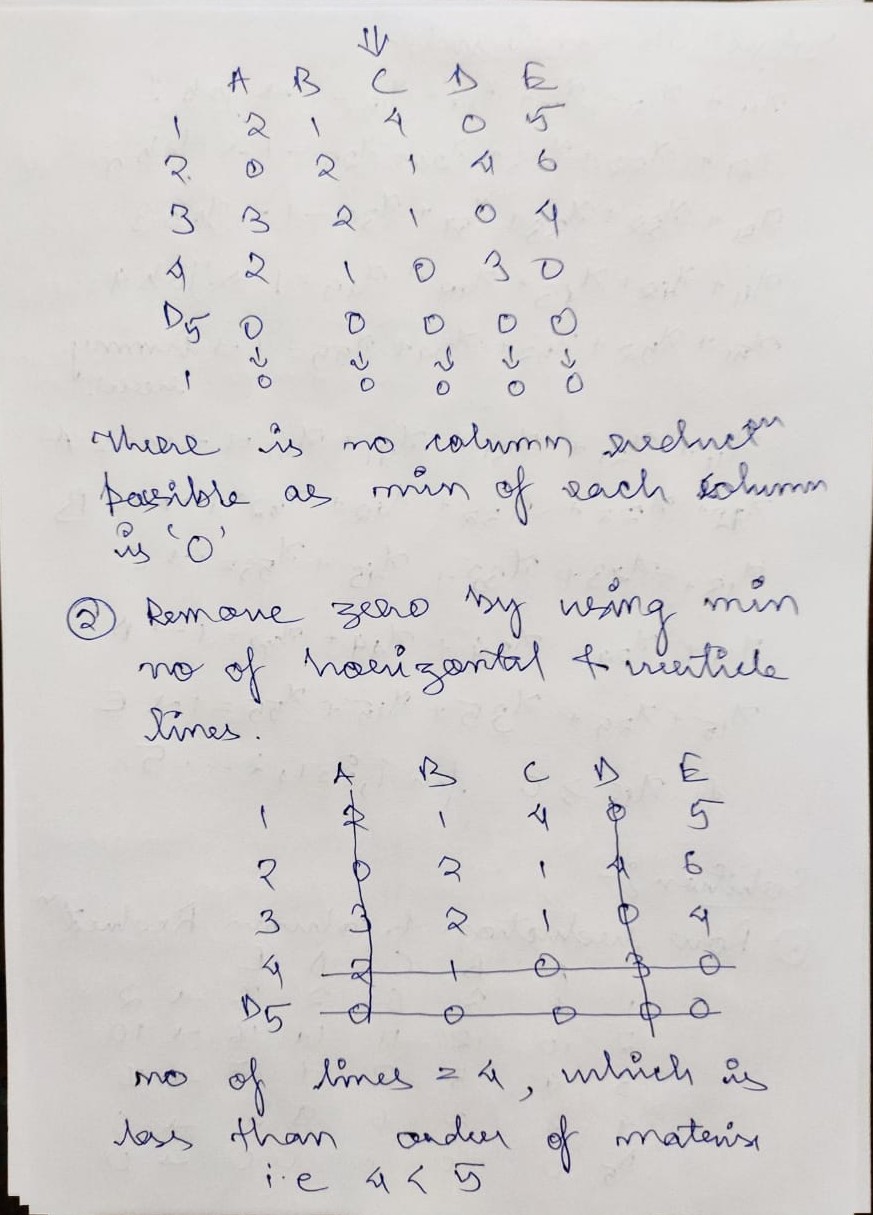 ⇓
A B C D E
1 2 1 4 0 5
2 0 2 1 4 6
3 3 2 1 0 4
4 2 1 0 3 0
D5 0 0 0 0 0
↓ ↓ ↓ ↓ ↓
1 0 0 0 0 0
There is no column reductⁿ
possible as min of each column
is '0'
② Remove zero by using min
no of horizontal & verticle
lines.
A B C D E
1 2 1 4 0 5
2 0 2 1 4 6
3 3 2 1 0 4
4 2 1 0 3 0
D5 0 0 0 0 0
no of lines = 4, which is
less than order of materix
i.e 4 < 5